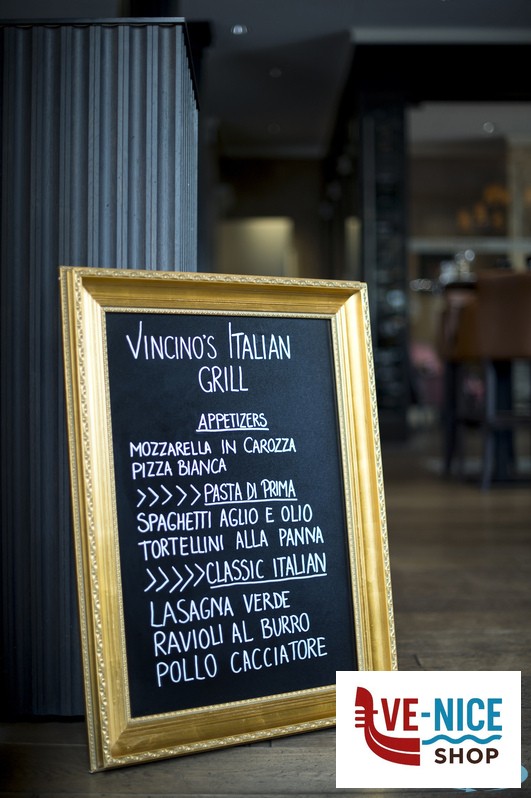 VINCINO'S ITALIAN
GRILL
APPETIZERS
MOZZARELLA IN CAROZZA
PIZZA BIANCA
>>>>>PASTA DI PRIMA
SPAGHETTI AGLIO E OLIO
TORTELLINI ALLA PANNA
>>>>>CLASSIC ITALIAN
LASAGNA VERDE
RAVIOLI AL BURRO
POLLO CACCIATORE
VE-NICE
SHOP